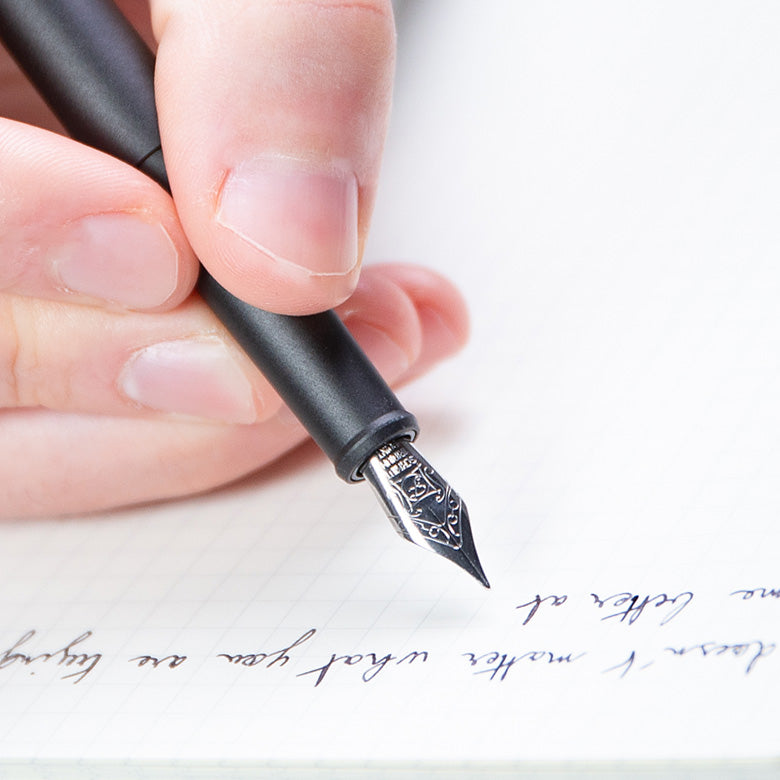 doesn't matter what you are trying
me better at